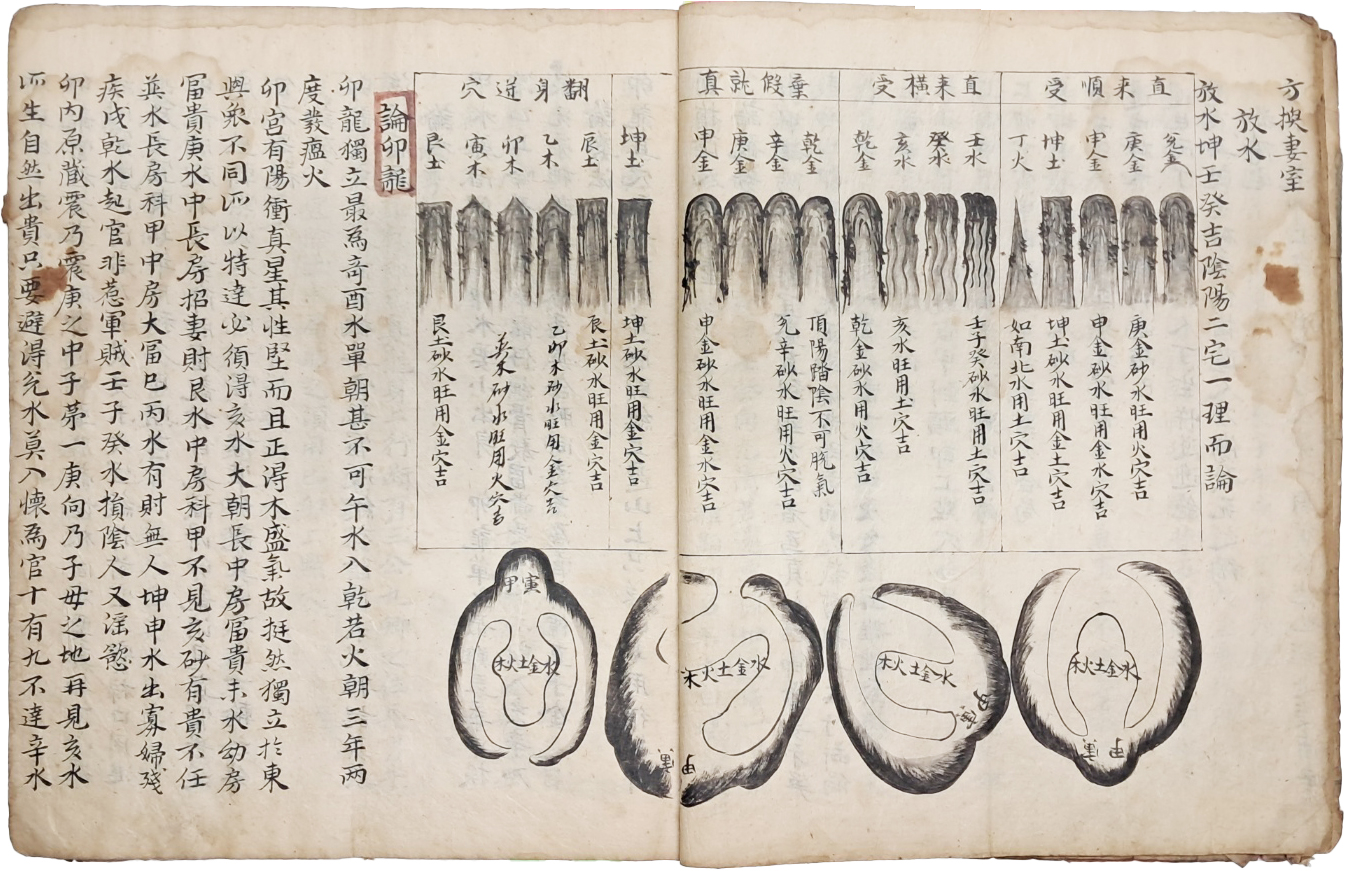 方換妻室
放水
放水坤壬癸吉陰陽二宅一理而論
直来順受
庚金
申金
坤土
丁火
庚金砂水旺用火穴吉
申金砂水旺用金水穴吉
坤土砂水旺用金土穴吉
如南北水用土穴吉
直来橫受
壬水
癸水
亥水
乾金
壬子癸砂水旺用土穴吉
亥水旺用土穴吉
乾金砂水旺用火穴吉
棄假就真
乾金
辛金
庚金
申金
頂陽踏陰不可脫氣
兑辛砂水旺用火穴吉
申金砂水旺用金水穴吉
坤土
坤土砂水旺用金穴吉
翻身逆穴
辰土
乙木
卯木
寅木
艮土
辰土砂水旺用金穴吉
乙卯木砂水旺用金穴吉
木砂水旺用火穴吉
艮土砂水旺用金穴吉
水金土火木
水金土火木
水金土火木
水金土火木
寅甲
論卯龍
卯龍獨立最為奇酉水單朝甚不可午水八乾若火朝三年两
度叢瘟火
卯宮有陽衝真星其性堅而且正得木盛氣故挺然獨立扵東
與衆不同所以特達必須得亥水大朝長中房冨貴未水幼房
冨貴庚水中長房招妻財艮水中房科甲不見亥砂有貴不任
巽水長房科甲中房大冨巳丙水有財無人坤申水出寡婦殘
疾戌乾水起官非惹軍賊壬子癸水損陰人又滛慾
卯内原蔵震乃震庚之中子苐一庚向乃子母之地再見亥水
所生自然出貴只要避淂兊水莫入懷為官十有九不達辛水